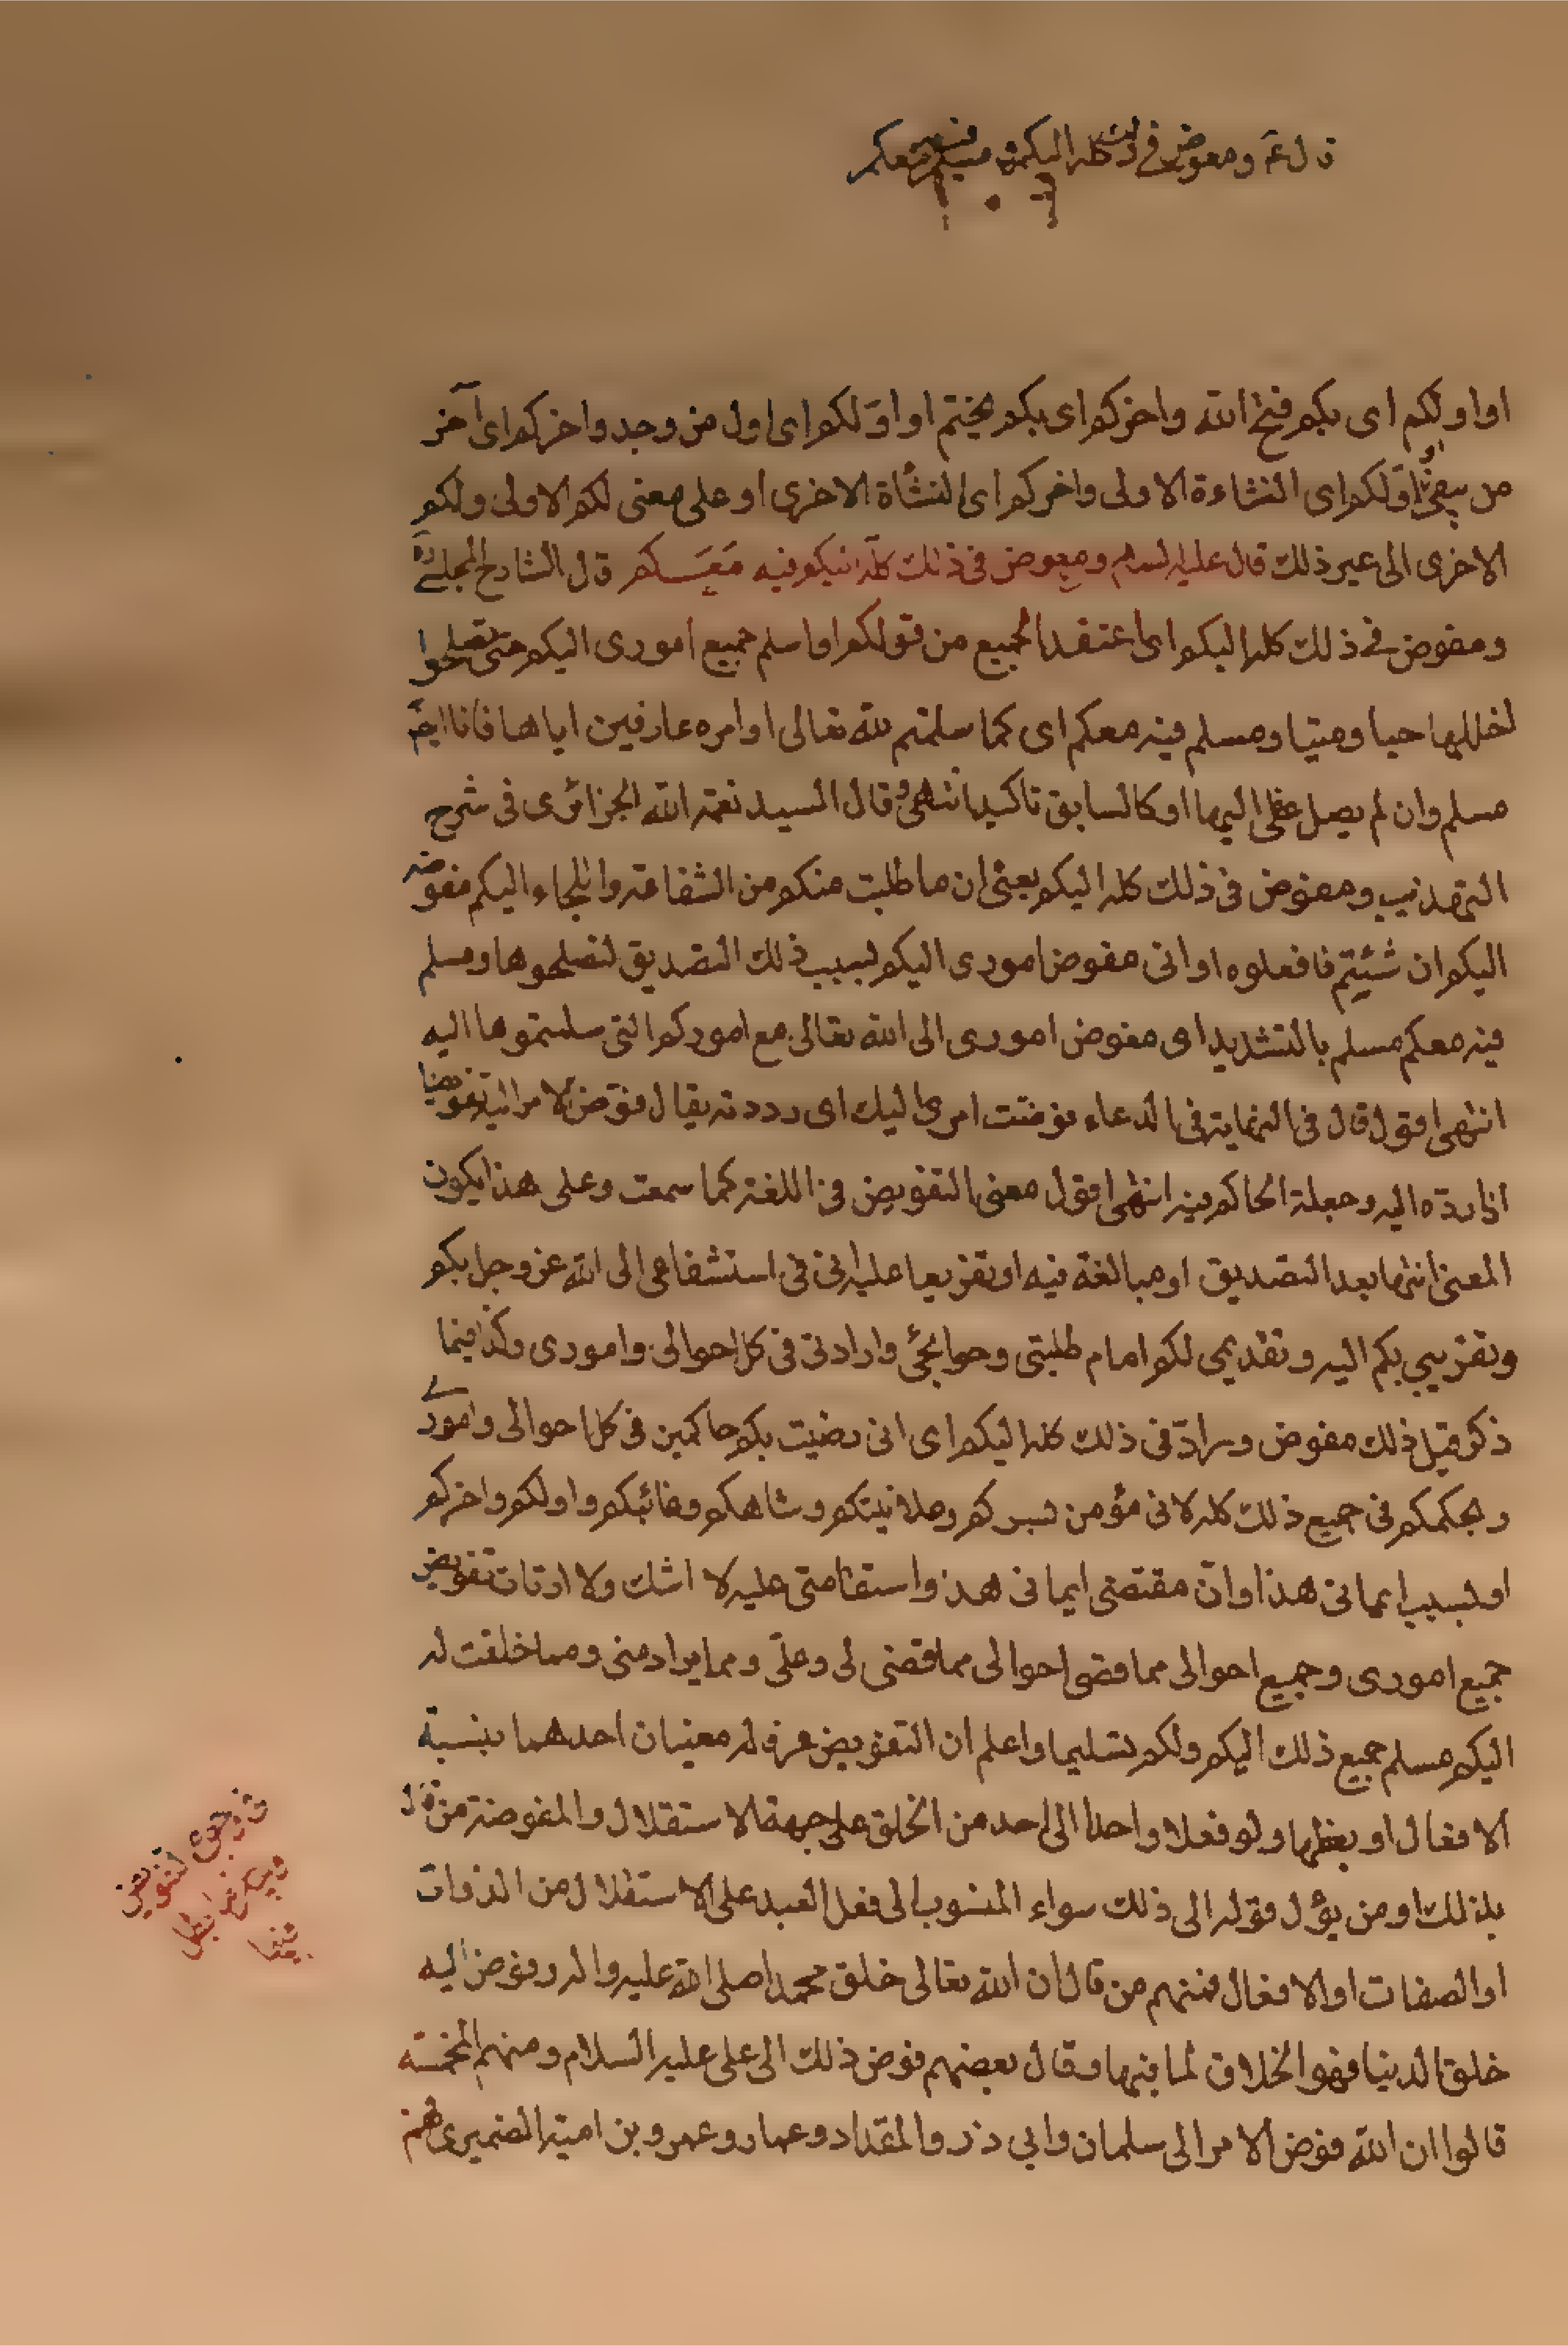 قال ع ومفوض فى ذلك كله اليكم ومسلم فيه معكم
او اولكم اى بكم فتح الله واخركم اى بكم يختم او اوّلكم اى اول من وجد واخركم اى آخر
من يبقى او اوّلكم اى النشاءة الاولى واخركم اى النشأة الاخرى او على معنى لكم الاولى ولكم
الاخرى الى غير ذلك قال عليه السلام ومفوض فى ذلك كله اليكم ومسلم فيه معكم قال الشارح المجلسى ره
ومفوض فى ذلك كله اليكم اى اعتقد الجميع من قولكم او اسلم جميع امورى اليكم حتى تصلحوا
خللها حيا وميتا ومسلم فيه معكم اى كما سلمتم لله تعالى اوامره عارفين اياها فانا ايضا
مسلم وان لم يصل عقلى اليها او كالسابق تاكيدا انتهى وقال السيد نعمة الله الجزائرى فى شرح
التهذيب ومفوض فى ذلك كله اليكم يعنى ان ما طلبت منكم من الشفاعة والالجاء اليكم مفوضه
اليكم ان شئتم فافعلوه او انى مفوض امورى اليكم بسبب ذلك التصديق لتصلحوها ومسلم
فيه معكم مسلم بالتشديد اى مفوض امورى الى الله تعالى مع اموركم التى سلمتموها اليه
انتهى اقول قال فى النهاية فى الدعاء فوضت امرى اليك اى رددته يقال فوّض الامر اليه تفويضا
اذا ردّه اليه وجعله الحاكم فيه انتهى اقول معنى التفويض فى اللغة كما سمعت وعلى هذا يكون
المعنى انها بعد التصديق او مبالغة فيه او تفريعا عليه انى فى استشفاعى الى الله عز وجل بكم
وتقربى بكم اليه وتقديمى لكم امام طلبتى وحوائجى وارادتى فى كل احوالى وامورى وكذا فيما
ذكر قبل ذلك مفوض وراد فى ذلك كله اليكم اى انى رضيت بكم حاكمين فى كل احوالى وامورى
وبحكمكم فى جميع ذلك كله لانى مؤمن بسركم وعلانيتكم وشاهدكم وغائبكم واولكم واخركم
او بسبب ايمانى هذا وانّ مقتضى ايمانى هذا واستقامتى عليه لا اشك ولا ارتاب تفويض
جميع امورى وجميع احوالى مما قضى لى وعلىّ ومما يراد منى ومما خلقت له
اليكم مسلم جميع ذلك اليكم ولكم تسليما واعلم ان التفويض عرف له معنيان احدهما بنسبة
الافعال او بعضها ولو فعلا واحدا الى احد من الخلق على جهة الاستقلال والمفوضة من قال
بذلك او من يؤل قوله الى ذلك سواء المنسوب الى فعل العبد على الاستقلال من الذوات
او الصفات او الافعال فمنهم من قال ان الله تعالى خلق محمدا صلى الله عليه واله وفوض اليه
خلق الدنيا فهو الخلاق لما فيها وقال بعضهم فوض ذلك الى على عليه السلام ومنهم المخمسة
قالوا ان الله فوض الامر الى سلمان وابى ذر والمقداد وعمار وعمرو بن امية الضميرى فهم